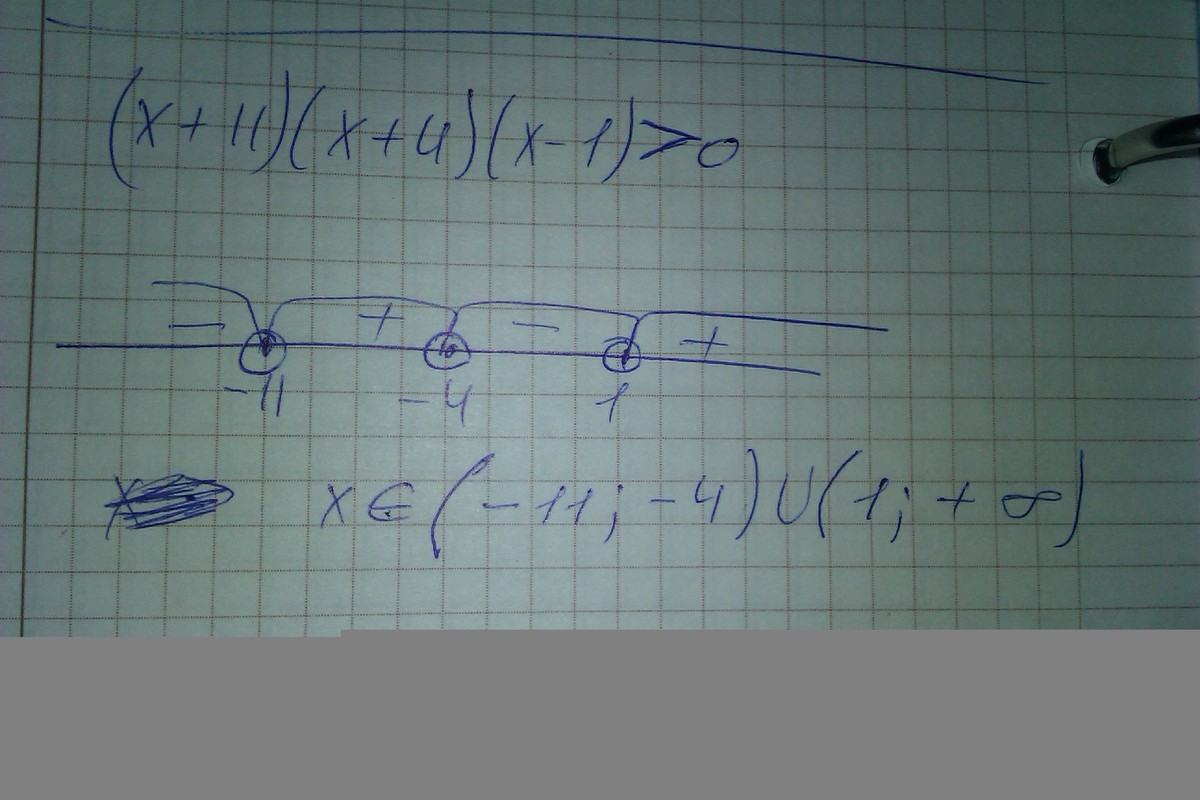 (x+11)(x+4)(x-1)>0
- + - +
-11 -4 1
x∈(-11; -4)∪(1; +∞)